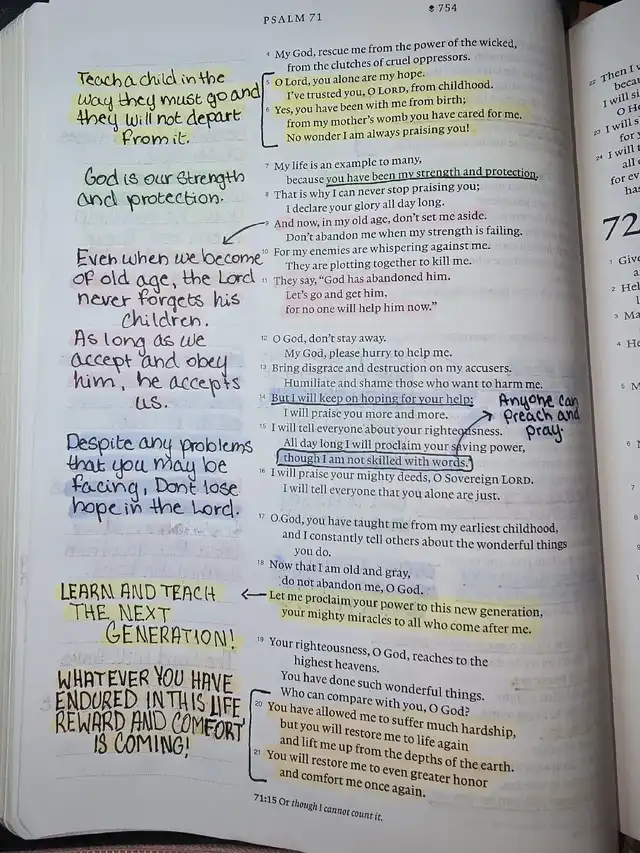 PSALM 71
754
Teach a child in the
way they must go and
they will not depart
from it.
God is our strength
and protection.
Even when we become
of old age, the Lord
never forgets his
children.
As long as we
accept and obey
him, he accepts
us.
Despite any problems
that you may be
facing, Dont lose
hope in the Lord.
LEARN AND TEACH
THE NEXT
GENERATION!
WHATEVER YOU HAVE
ENDURED IN THIS LIFE
REWARD AND COMFORT
IS COMING!
4 My God, rescue me from the power of the wicked,
from the clutches of cruel oppressors.
5 O Lord, you alone are my hope.
I've trusted you, O LORD, from childhood.
6 Yes, you have been with me from birth;
from my mother's womb you have cared for me.
No wonder I am always praising you!
7 My life is an example to many,
because you have been my strength and protection.
8 That is why I can never stop praising you;
I declare your glory all day long.
9 And now, in my old age, don't set me aside.
Don't abandon me when my strength is failing.
10 For my enemies are whispering against me.
They are plotting together to kill me.
11 They say, "God has abandoned him.
Let's go and get him,
for no one will help him now."
12 O God, don't stay away.
My God, please hurry to help me.
13 Bring disgrace and destruction on my accusers.
Humiliate and shame those who want to harm me.
14 But I will keep on hoping for your help;
I will praise you more and more.
15 I will tell everyone about your righteousness.
All day long I will proclaim your saving power,
though I am not skilled with words.
16 I will praise your mighty deeds, O Sovereign LORD.
I will tell everyone that you alone are just.
Anyone can
preach and
pray
17 O God, you have taught me from my earliest childhood,
and I constantly tell others about the wonderful things
you do.
18 Now that I am old and gray,
do not abandon me, O God.
Let me proclaim your power to this new generation,
your mighty miracles to all who come after me.
19 Your righteousness, O God, reaches to the
highest heavens.
You have done such wonderful things.
Who can compare with you, O God?
20 You have allowed me to suffer much hardship,
but you will restore me to life again
and lift me up from the depths of the earth.
21 You will restore me to even greater honor
and comfort me once again.
71:15 Or though I cannot count it.
22 Then I
becau
I will si
O H
23 I will s
for
24 I will t
all
for ev
ha
72
1 Give
2 Hel
3 Ma
4 He
5 M
6
7
8
9